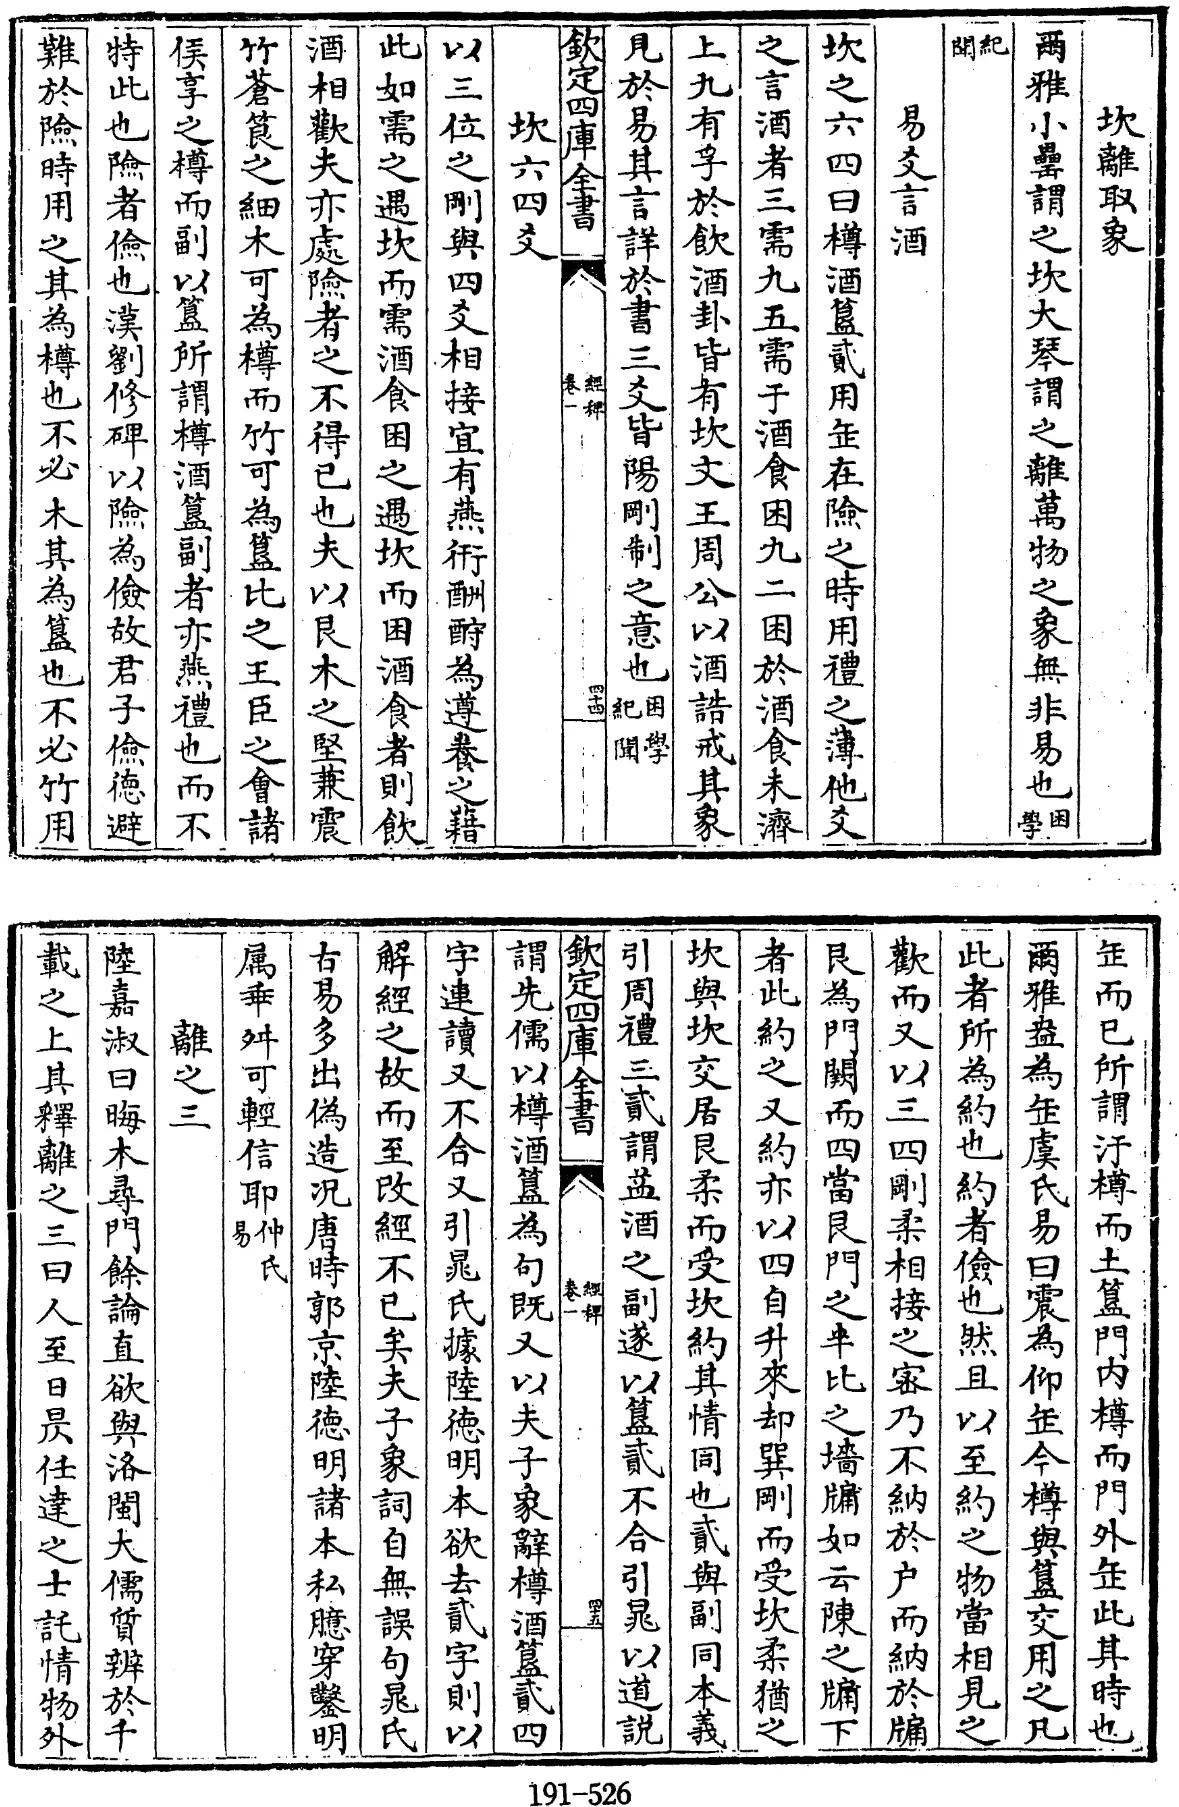 坎離取象
爾雅小罍謂之坎大琴謂之離萬物之象無非易也困學
紀聞
易爻言酒
坎之六四曰樽酒簋貳用缶在險之時用禮之薄他爻
之言酒者三需九五需于酒食困九二困於酒食未濟
上九有孚於飲酒卦皆有坎文王周公以酒誥戒其象
見於易其言詳於書三爻皆陽剛制之意也困學紀聞
欽定四庫全書 經稗 卷一 四十四
坎六四爻
以三位之剛與四爻相接宜有燕衎酬酢為遵養之藉
此如需之遇坎而需酒食困之遇坎而困酒食者則飲
酒相歡夫亦處險者之不得已也夫以艮木之堅兼震
竹蒼筤之細木可為樽而竹可為簋比之王臣之會諸
侯享之樽而副以簋所謂樽酒簋副者亦燕禮也而不
特此也險者儉也漢劉修碑以險為儉故君子儉德避
難於險時用之其為樽也不必木其為簋也不必竹用
缶而已所謂汙樽而土簋門内樽而門外缶此其時也
爾雅盎為缶虞氏易曰震為仰缶今樽與簋交用之凡
此者所為約也約者儉也然且以至約之物當相見之
歡而又以三四剛柔相接之密乃不納於户而納於牖
艮為門闕而四當艮門之半比之墻牖如云陳之牖下
者此約之又約亦以四自升來却巽剛而受坎柔猶之
坎與坎交居艮柔而受坎約其情同也貳與副同本義
引周禮三貳謂益酒之副遂以簋貳不合引晁以道説
欽定四庫全書 經稗 卷一 四十五
謂先儒以樽酒簋為句既又以夫子象辭樽酒簋貳四
字連讀又不合又引晁氏據陸德明本欲去貳字則以
解經之故而至改經不已矣夫子象詞自無誤句晁氏
古易多出偽造况唐時郭京陸德明諸本私臆穿鑿明
属乖舛可輕信耶仲氏易
離之三
陸嘉淑曰晦木尋門餘論直欲與洛閩大儒質辨於千
載之上其釋離之三曰人至日昃任達之士託情物外
191-526